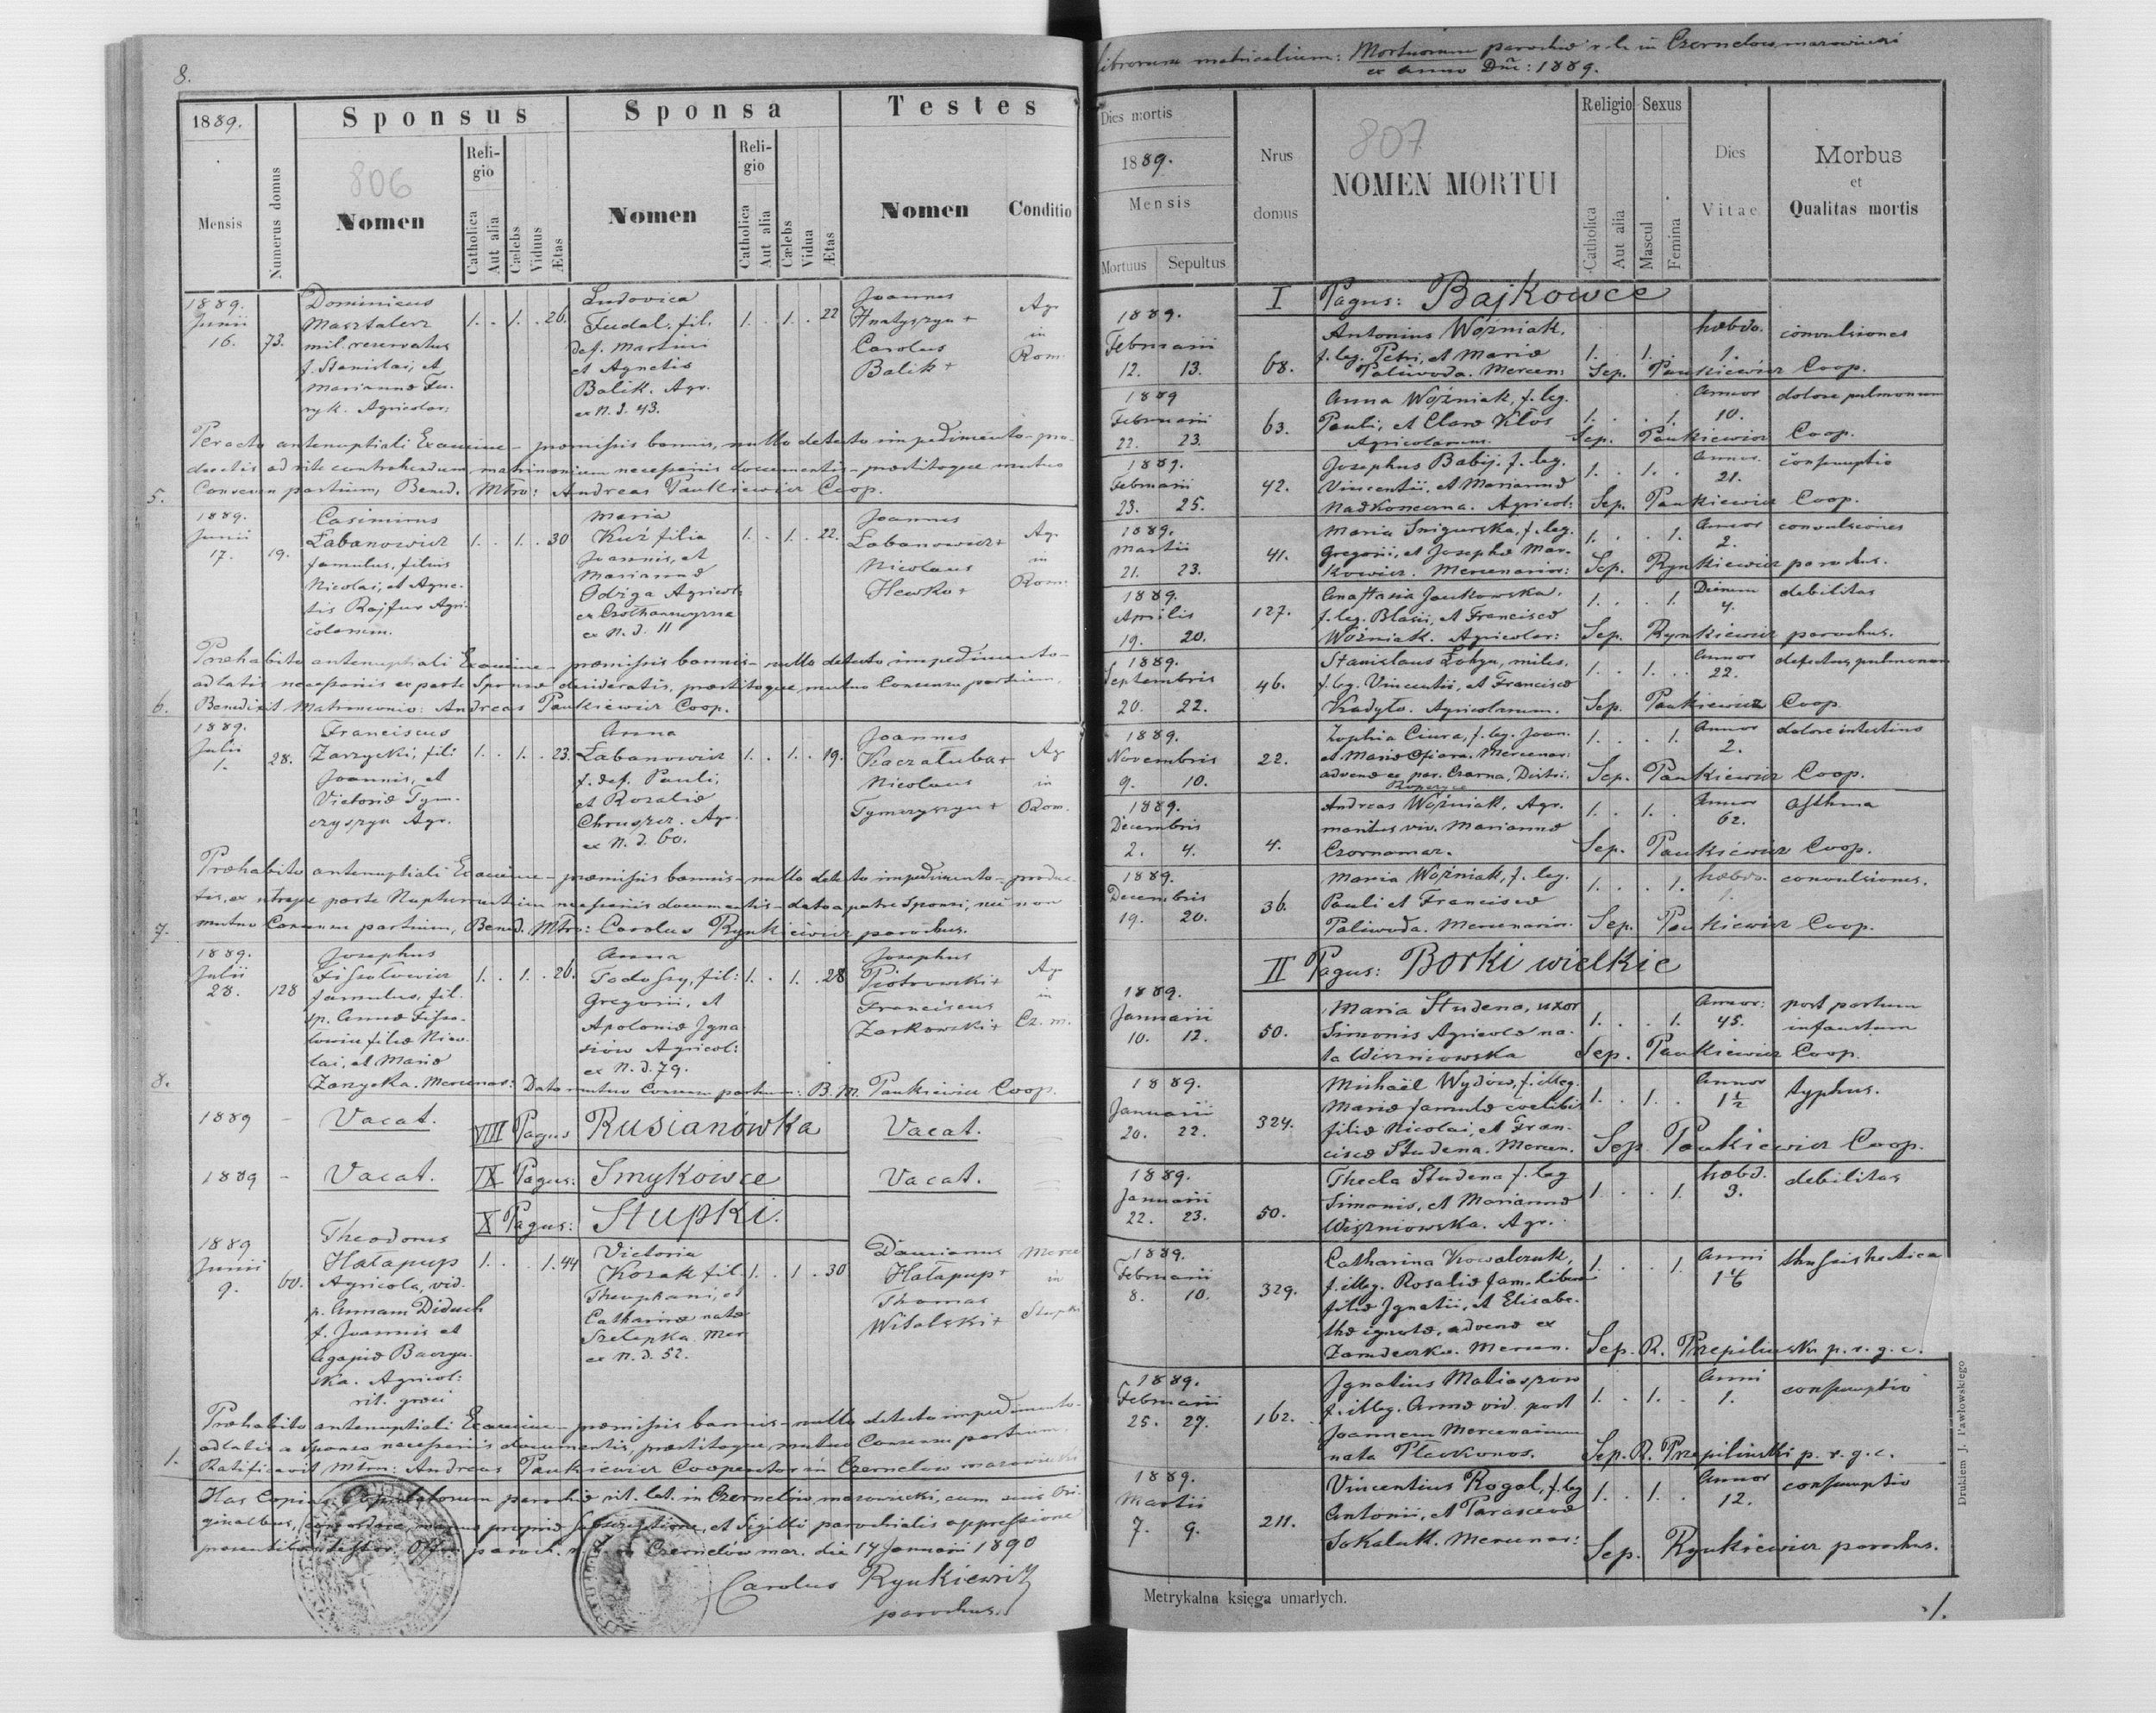 8.
1889.
Sponsus
Sponsa
Testes
Mensis
Numerus domus
806
Nomen
Religio
Catholica
Aut alia
Cælebs
Viduus
Ætas
Nomen
Religio
Catholica
Aut alia
Cælebs
Vidua
Ætas
Nomen
Conditio
1889.
Junii
16.
73.
Dominicus
Masztalerz
mil. reservatus
f. Stanislai, et
Mariannæ Fu-
ryk. Agricolar:
1. . 1. . 26.
Ludovica
Fudal. fil.
def. Martini
et Agnetis
Balik. Agr.
ex N. d. 43.
1. . 1. . 22
Joannes
Hnatyszyn +
Carolus
Balik +
Agr.
in
Rom.
Peracto antenuptiali Examine - præmissis bannis, nullo detecto impedimento - pro-
ductis ad rite contrahendum matrimonium necessariis documentis - præstitoque mutuo
5. Consensu partium, Bened. Mtro: Andreas Pankiewicz Coop.
1889.
Junii
17.
19.
Casimirus
Łabanowicz
famulus, filius
Nicolai, et Agne-
tis Rajfur Agri-
colarum.
1. . 1. . 30
Maria
Kuź filia
Joannis, et
Mariannæ
Odziga Agricol:
ex N. d. 11
1. . 1. . 22.
Joannes
Łabanowicz +
Nicolaus
Hewko +
Agr.
in
Rom.
Præhabito antenuptiali Examine - præmissis bannis - nullo detecto impedimento -
adlatis necessariis ex parte Sponsæ desideratis, præstitoque mutuo Consensu partium,
6. Benedixit Matrimonio: Andreas Pankiewicz Coop.
1889.
Julii
1.
28.
Franciscus
Zarzycki, fil:
Joannis, et
Victoriæ Tym-
czyszyn Agr.
1. . 1. . 23.
Anna
Łabanowicz
f. def. Pauli,
et Rozaliæ
Chruszcz. Agr.
ex N. d. 60.
1. . 1. . 19.
Joannes
Kaczałuba +
Nicolaus
Tymczyszyn +
Agr
in
Rom.
Præhabito antenuptiali Examine - præmissis bannis - nullo detecto impedimento - produc-
tis, ex utraque parte Nupturientium necessariis documentis - dato a patre Sponsi, nec non
7. mutuo Consensu partium, Bened. Mtro: Carolus Rynkiewicz parochus.
1889.
Julii
28.
128
Josephus
Fissołowicz
famulus, fil.
sp. Annæ Fisso-
łowicz filiæ Nico-
lai, et Mariæ
Zarzycka. Mercenar:
1. . 1. . 26.
Anna
Fedossy, fil:
Gregorii, et
Apoloniæ Igna-
siów Agricol:
ex N. d. 79.
1. . 1. . 28
Josephus
Piotrowski +
Franciscus
Zarkowski +
Agr
in
Cz. m.
8. Dato mutuo Consensu partium: B. M. Pankiewicz Coop.
1889 - Vacat. VIII Pagus Rusianówka Vacat.
1889 - Vacat. IX Pagus: Smykowce Vacat.
X Pagus: Stupki.
1889
Junii
9.
60.
Theodorus
Hałapup
Agricola, vid.
p. Annam Diduch
f. Joannis et
Agapiæ Baczyn-
ska. Agricol:
rit. græci
1. . . 1. 44
Victoria
Kozak fil.
Theophani, et
Catharinæ natæ
Szelepka. Mer
ex N. d. 52.
1. . 1 . 30
Damianus
Hałapup +
Thomas
Witalski +
Merce
in
Stupki
Præhabito antenuptiali Examine - præmissis bannis - nullo detecto impedimento -
adlatis a Sponso necessariis documentis, præstitoque mutuo Consensu partium,
1. Ratificavit Mtrm: Andreas Pankiewicz Cooperator in Czernelów mazowiecki
Has Copias Copulatorum parochiæ rit. lat. in Czernelów mazowiecki, cum suis Ori-
ginalibus, concordare, manus propriæ subscriptione, et Sigilli parochialis appressione
præsentibus testor. Off. paroch. r. l. in Czernelów maz. die 14 Januarii 1890
Carolus Rynkiewicz
parochus.
librorum matricalium: Mortuorum parochiæ r. l. in Czernelow mazowiecki
ex anno Dni: 1889.
Dies mortis
1889.
Mensis
Mortuus
Sepultus
Nrus
domus
807
NOMEN MORTUI
Religio
Catholica
Aut alia
Sexus
Mascul
Femina
Dies
Vitae
Morbus
et
Qualitas mortis
I Pagus: Bajkowce
1889.
Februarii
12. 13.
68.
Antonius Woźniak.
f. leg. Petri, et Mariæ
Paliwoda. Mercen:
1. . 1. .
hebdo.
1.
convulsiones
Sep. Pankiewicz Coop.
1889
Februarii
22. 23.
63.
Anna Woźniak, f. leg.
Pauli, et Claræ Kłos
Agricolarum.
1. . . 1.
Annor
10.
dolore pulmonum
Sep. Pankiewicz Coop.
1889.
Februarii
23. 25.
42.
Josephus Babij. f. leg.
Vincentii, et Mariannæ
Nadkonczna. Agricol:
1. . 1. .
Annor.
21.
consumptio
Sep. Pankiewicz Coop.
1889.
Martii
21. 23.
41.
Maria Snigurska, f. leg.
Gregorii, et Josephæ Mar-
kowicz. Mercenarior:
1. . . 1.
Annor
2.
convulsiones
Sep. Rynkiewicz parochus.
1889.
Aprilis
19. 20.
127.
Anastasia Jankowska.
f. leg. Blasii, et Franciscæ
Woźniak. Agricolar:
1. . . 1.
Dierum
4.
debilitas
Sep. Rynkiewicz parochus.
1889.
Septembris
20. 22.
46.
Stanislaus Łohyn, miles.
f. leg. Vincentii, et Franciscæ
Kradyło. Agricolarum.
1. . 1. .
Annor
22.
defectus pulmonum
Sep. Pankiewicz Coop.
1889.
Novembris
9. 10.
22.
Zophia Ciura, f. leg. Joan.
et Mariæ Ofiara. Mercenar:
advenæ ex par. Czarna, Distri.
Ropczyce
1. . . 1.
Annor
2.
dolore intestino
Sep. Pankiewicz Coop.
1889.
Decembris
2. 4.
4.
Andreas Woźniak. Agr.
maritus viv. Mariannæ
Czornomaz.
1. . 1. .
Annor
62.
Asthma
Sep. Pankiewicz Coop.
1889.
Decembris
19. 20.
36.
Maria Woźniak, f. leg.
Pauli et Franciscæ
Paliwoda. Mercenarior.
1. . . 1.
hebdo.
1.
convulsiones.
Sep. Pankiewicz Coop.
II Pagus: Borki wielkie
1889.
Januarii
10. 12.
50.
Maria Studena, uxor
Simonis Agricolæ na-
ta Wiszniowska
1. . . 1.
Annor:
45.
post partum
infaustum
Sep. Pankiewicz Coop.
1889.
Januarii
20. 22.
324.
Michaël Wydów, f. illeg.
Mariæ famulæ cœlibis
filiæ Nicolai, et Fran-
ciscæ Studena. Mercen.
1. . 1. .
Annor
1½
typhus.
Sep Pankiewicz Coop.
1889.
Januarii
22. 23.
50.
Thecla Studena f. leg
Simonis, et Mariannæ
Wiszniowska. Agr.
1. . . 1.
hebd.
3.
debilitas
1889.
Februarii
8. 10.
329.
Catharina Kowalczuk,
f. illeg. Rosaliæ fam. liberæ
filiæ Ignatii, et Elisabe-
thæ ignotæ, advenæ ex
1. . . 1.
Anni
1 1/6
Sep. R. Przepiliński p. r. g. c.
1889.
Februarii
25. 27.
162.
Ignatius Matiaszów
f. illeg. Annæ vid. post
Joannem Mercenarium
nata Płaskonos.
1. . 1. .
Anni
1.
consumptio
Sep. R. Przepiliński p. r. g. c.
1889.
Martii
7. 9.
211.
Vincentius Rogal, f. leg
Antonii, et Parascevæ
Sokaluk. Mercenar:
1. . 1. .
Annor
12.
consumptio
Sep. Rynkiewicz parochus.
Drukiem J. Pawłowskiego
Metrykalna księga umarłych.
./.